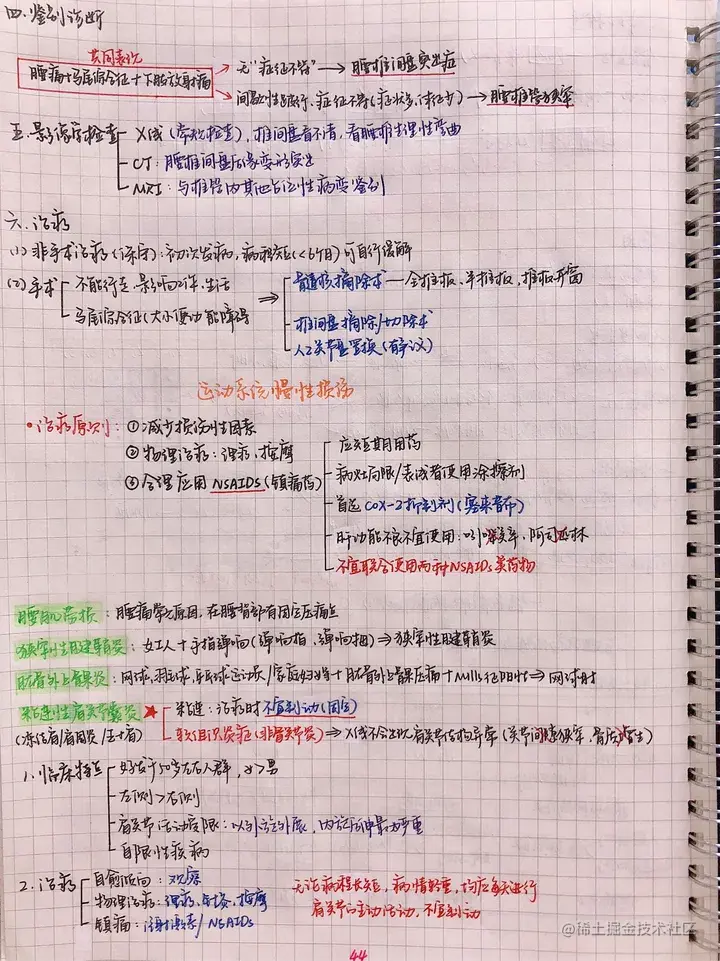 四.鉴别诊断
共同表现
腰痛+马尾综合征+下肢放射痛
无"症征不符"→腰椎间盘突出症
间歇性跛行、症征不符(症状多,体征少)→腰椎管狭窄
五.影像学检查
X线(常规检查),椎间盘看不清,看腰椎生理性弯曲
CT:腰椎间盘后缘变形突出
MRI:与椎管内其他占位性病变鉴别
六.治疗
(1)非手术治疗(保守):初次发病,病程短(<6个月)可自行缓解
(2)手术
不能行走,影响工作、生活
马尾综合征(大小便功能障碍
⇒
髓核摘除术—全椎板、半椎板,椎板开窗
椎间盘摘除/切除术
人工关节盘置换(有争议)
运动系统慢性损伤
•治疗原则:①减少损伤性因素
②物理治疗:理疗,按摩
③合理应用NSAIDS(镇痛药)
应短期用药
病灶局限/表浅者使用涂擦剂
首选COX-2抑制剂(塞来昔布)
肝功能不良不宜使用:吲哚美辛,阿司匹林
不宜联合使用两种NSAIDs类药物
腰肌劳损:腰痛常见原因,在腰背部有固定压痛点
狭窄性腱鞘炎:女工人+手指弹响(弹响指,弹响拇)⇒狭窄性腱鞘炎
肱骨外上髁炎:网球,羽毛球,乒乓球运动员/家庭妇女等+肱骨外上髁压痛+Mills征阳性⇒网球肘
粘连性肩关节囊炎
(冻结肩/肩周炎/五十肩)
★
粘连:治疗时不宜制动(固定)
软组织炎症(非骨关节炎)⇒X线不会出现肩关节结构异常(关节间隙狭窄,骨质增生)
1.临床特点
好发于50岁左右人群,女>男
左侧>右侧
肩关节活动受限:以外旋外展,内旋后伸最为严重
自限性疾病
2.治疗
自愈倾向:观察
物理治疗:理疗,针灸,按摩
镇痛:注射激素/NSAIDs
无论病程长短,病情轻重,均应每天进行
肩关节的主动活动,不宜制动
44
@稀土掘金技术社区